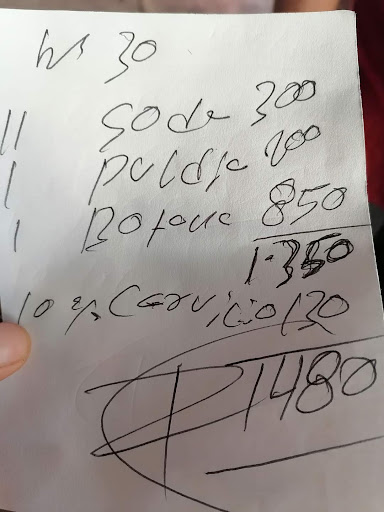 30
11 soda 300
1 puldja 200
1 Botana 850
1.350
10 % Carvicio 130
1480